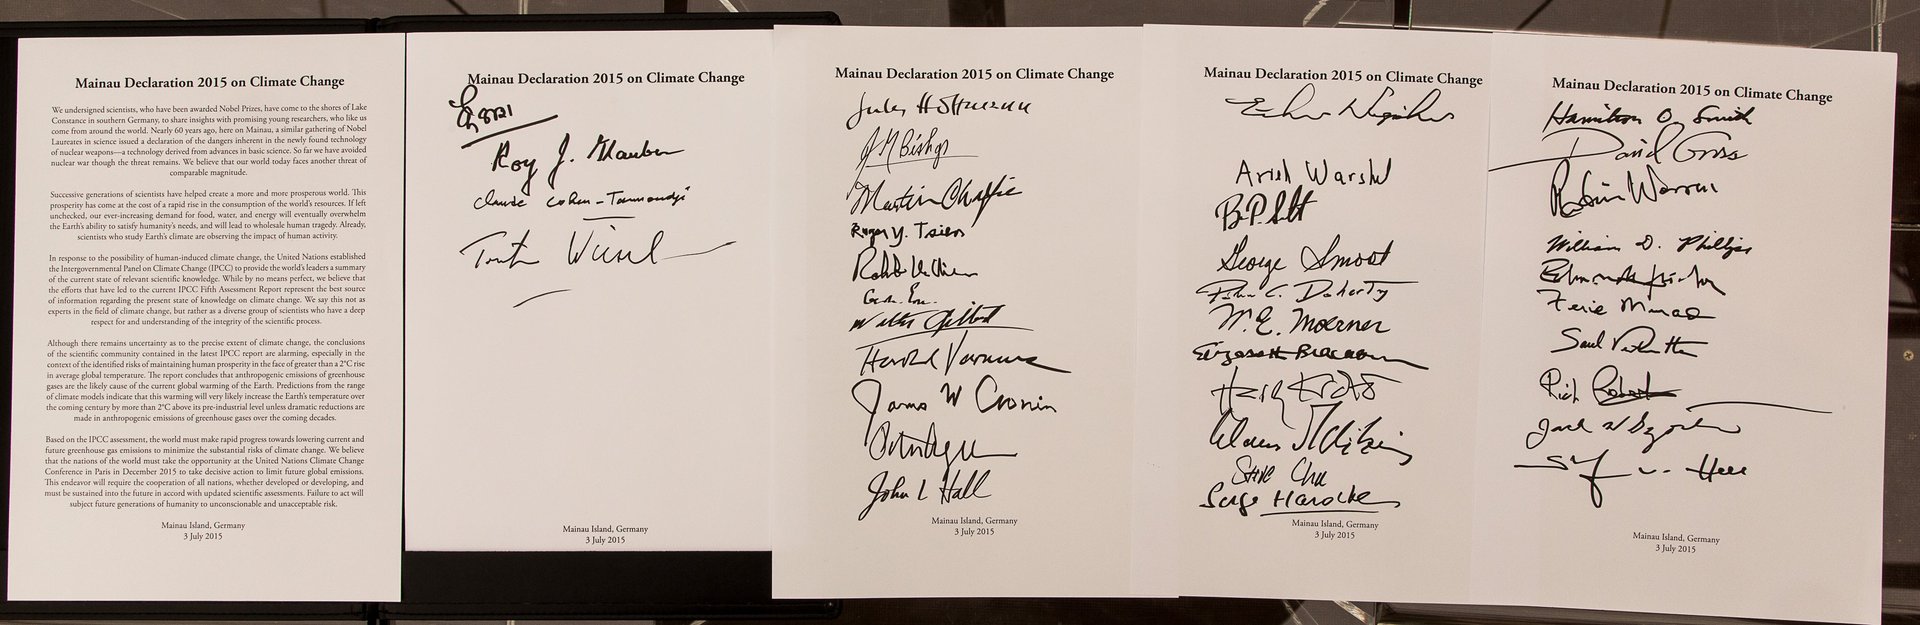 Mainau Declaration 2015 on Climate Change
We undersigned scientists, who have been awarded Nobel Prizes, have come to the shores of Lake
Constance in southern Germany, to share insights with promising young researchers, who like us
come from around the world. Nearly 60 years ago, here on Mainau, a similar gathering of Nobel
Laureates in science issued a declaration of the dangers inherent in the newly found technology
of nuclear weapons—a technology derived from advances in basic science. So far we have avoided
nuclear war though the threat remains. We believe that our world today faces another threat of
comparable magnitude.
Successive generations of scientists have helped create a more and more prosperous world. This
prosperity has come at the cost of a rapid rise in the consumption of the world's resources. If left
unchecked, our ever-increasing demand for food, water, and energy will eventually overwhelm
the Earth's ability to satisfy humanity's needs, and will lead to wholesale human tragedy. Already,
scientists who study Earth's climate are observing the impact of human activity.
In response to the possibility of human-induced climate change, the United Nations established
the Intergovernmental Panel on Climate Change (IPCC) to provide the world's leaders a summary
of the current state of relevant scientific knowledge. While by no means perfect, we believe that
the efforts that have led to the current IPCC Fifth Assessment Report represent the best source
of information regarding the present state of knowledge on climate change. We say this not as
experts in the field of climate change, but rather as a diverse group of scientists who have a deep
respect for and understanding of the integrity of the scientific process.
Although there remains uncertainty as to the precise extent of climate change, the conclusions
of the scientific community contained in the latest IPCC report are alarming, especially in the
context of the identified risks of maintaining human prosperity in the face of greater than a 2°C rise
in average global temperature. The report concludes that anthropogenic emissions of greenhouse
gases are the likely cause of the current global warming of the Earth. Predictions from the range
of climate models indicate that this warming will very likely increase the Earth's temperature over
the coming century by more than 2°C above its pre-industrial level unless dramatic reductions are
made in anthropogenic emissions of greenhouse gases over the coming decades.
Based on the IPCC assessment, the world must make rapid progress towards lowering current and
future greenhouse gas emissions to minimize the substantial risks of climate change. We believe
that the nations of the world must take the opportunity at the United Nations Climate Change
Conference in Paris in December 2015 to take decisive action to limit future global emissions.
This endeavor will require the cooperation of all nations, whether developed or developing, and
must be sustained into the future in accord with updated scientific assessments. Failure to act will
subject future generations of humanity to unconscionable and unacceptable risk.
Mainau Island, Germany
3 July 2015
Mainau Declaration 2015 on Climate Change
Roy J. Glauber
Claude Cohen-Tannoudji
Mainau Island, Germany
3 July 2015
Mainau Declaration 2015 on Climate Change
Jules Hoffmann
JM Bishop
Martin Chalfie
Roger Y. Tsien
Walter Gilbert
Harold Varmus
James W Cronin
John L Hall
Mainau Island, Germany
3 July 2015
Mainau Declaration 2015 on Climate Change
Arieh Warshel
George Smoot
Peter C. Doherty
W.E. Moerner
Elizabeth Blackburn
Harry Kroto
Steve Chu
Serge Haroche
Mainau Island, Germany
3 July 2015
Mainau Declaration 2015 on Climate Change
Hamilton O. Smith
David Gross
Robin Warren
William D. Phillips
Ferid Murad
Saul Perlmutter
Rich Roberts
Mainau Island, Germany
3 July 2015